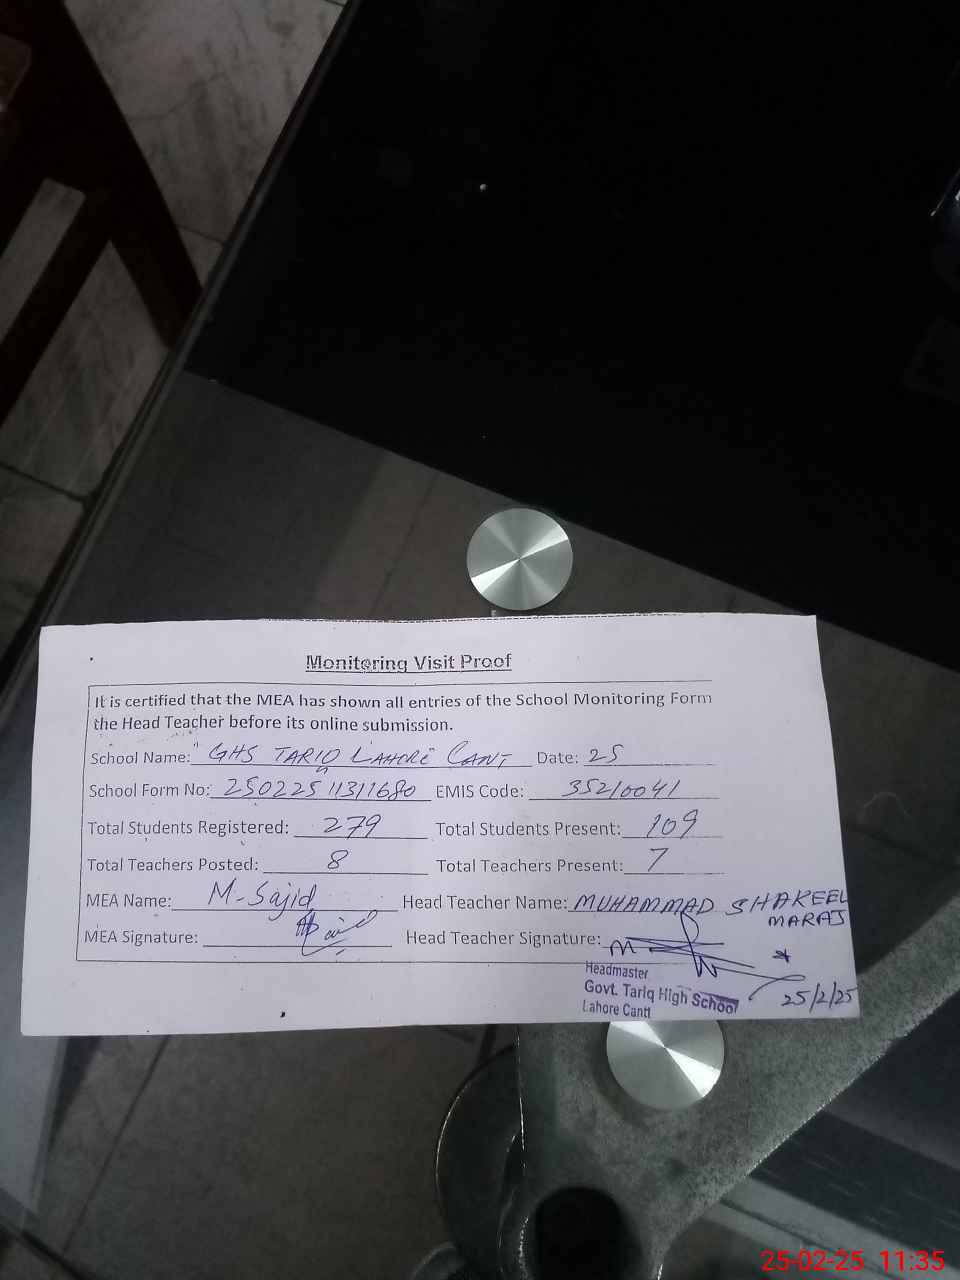 Monitoring Visit Proof
It is certified that the MEA has shown all entries of the School Monitoring Form
the Head Teacher before its online submission.
School Name: GHS TARIQ LAHORE CANT Date: 25
School Form No: 25022511311680 EMIS Code: 35210041
Total Students Registered: 279 Total Students Present: 109
Total Teachers Posted: 8 Total Teachers Present: 7
MEA Name: M-Sajid Head Teacher Name: MUHAMMAD SHAKEEL
MARAJ
MEA Signature: Head Teacher Signature:
Headmaster
Govt. Tariq High School
Lahore Cantt
25/2/25
25-02-25 11:35